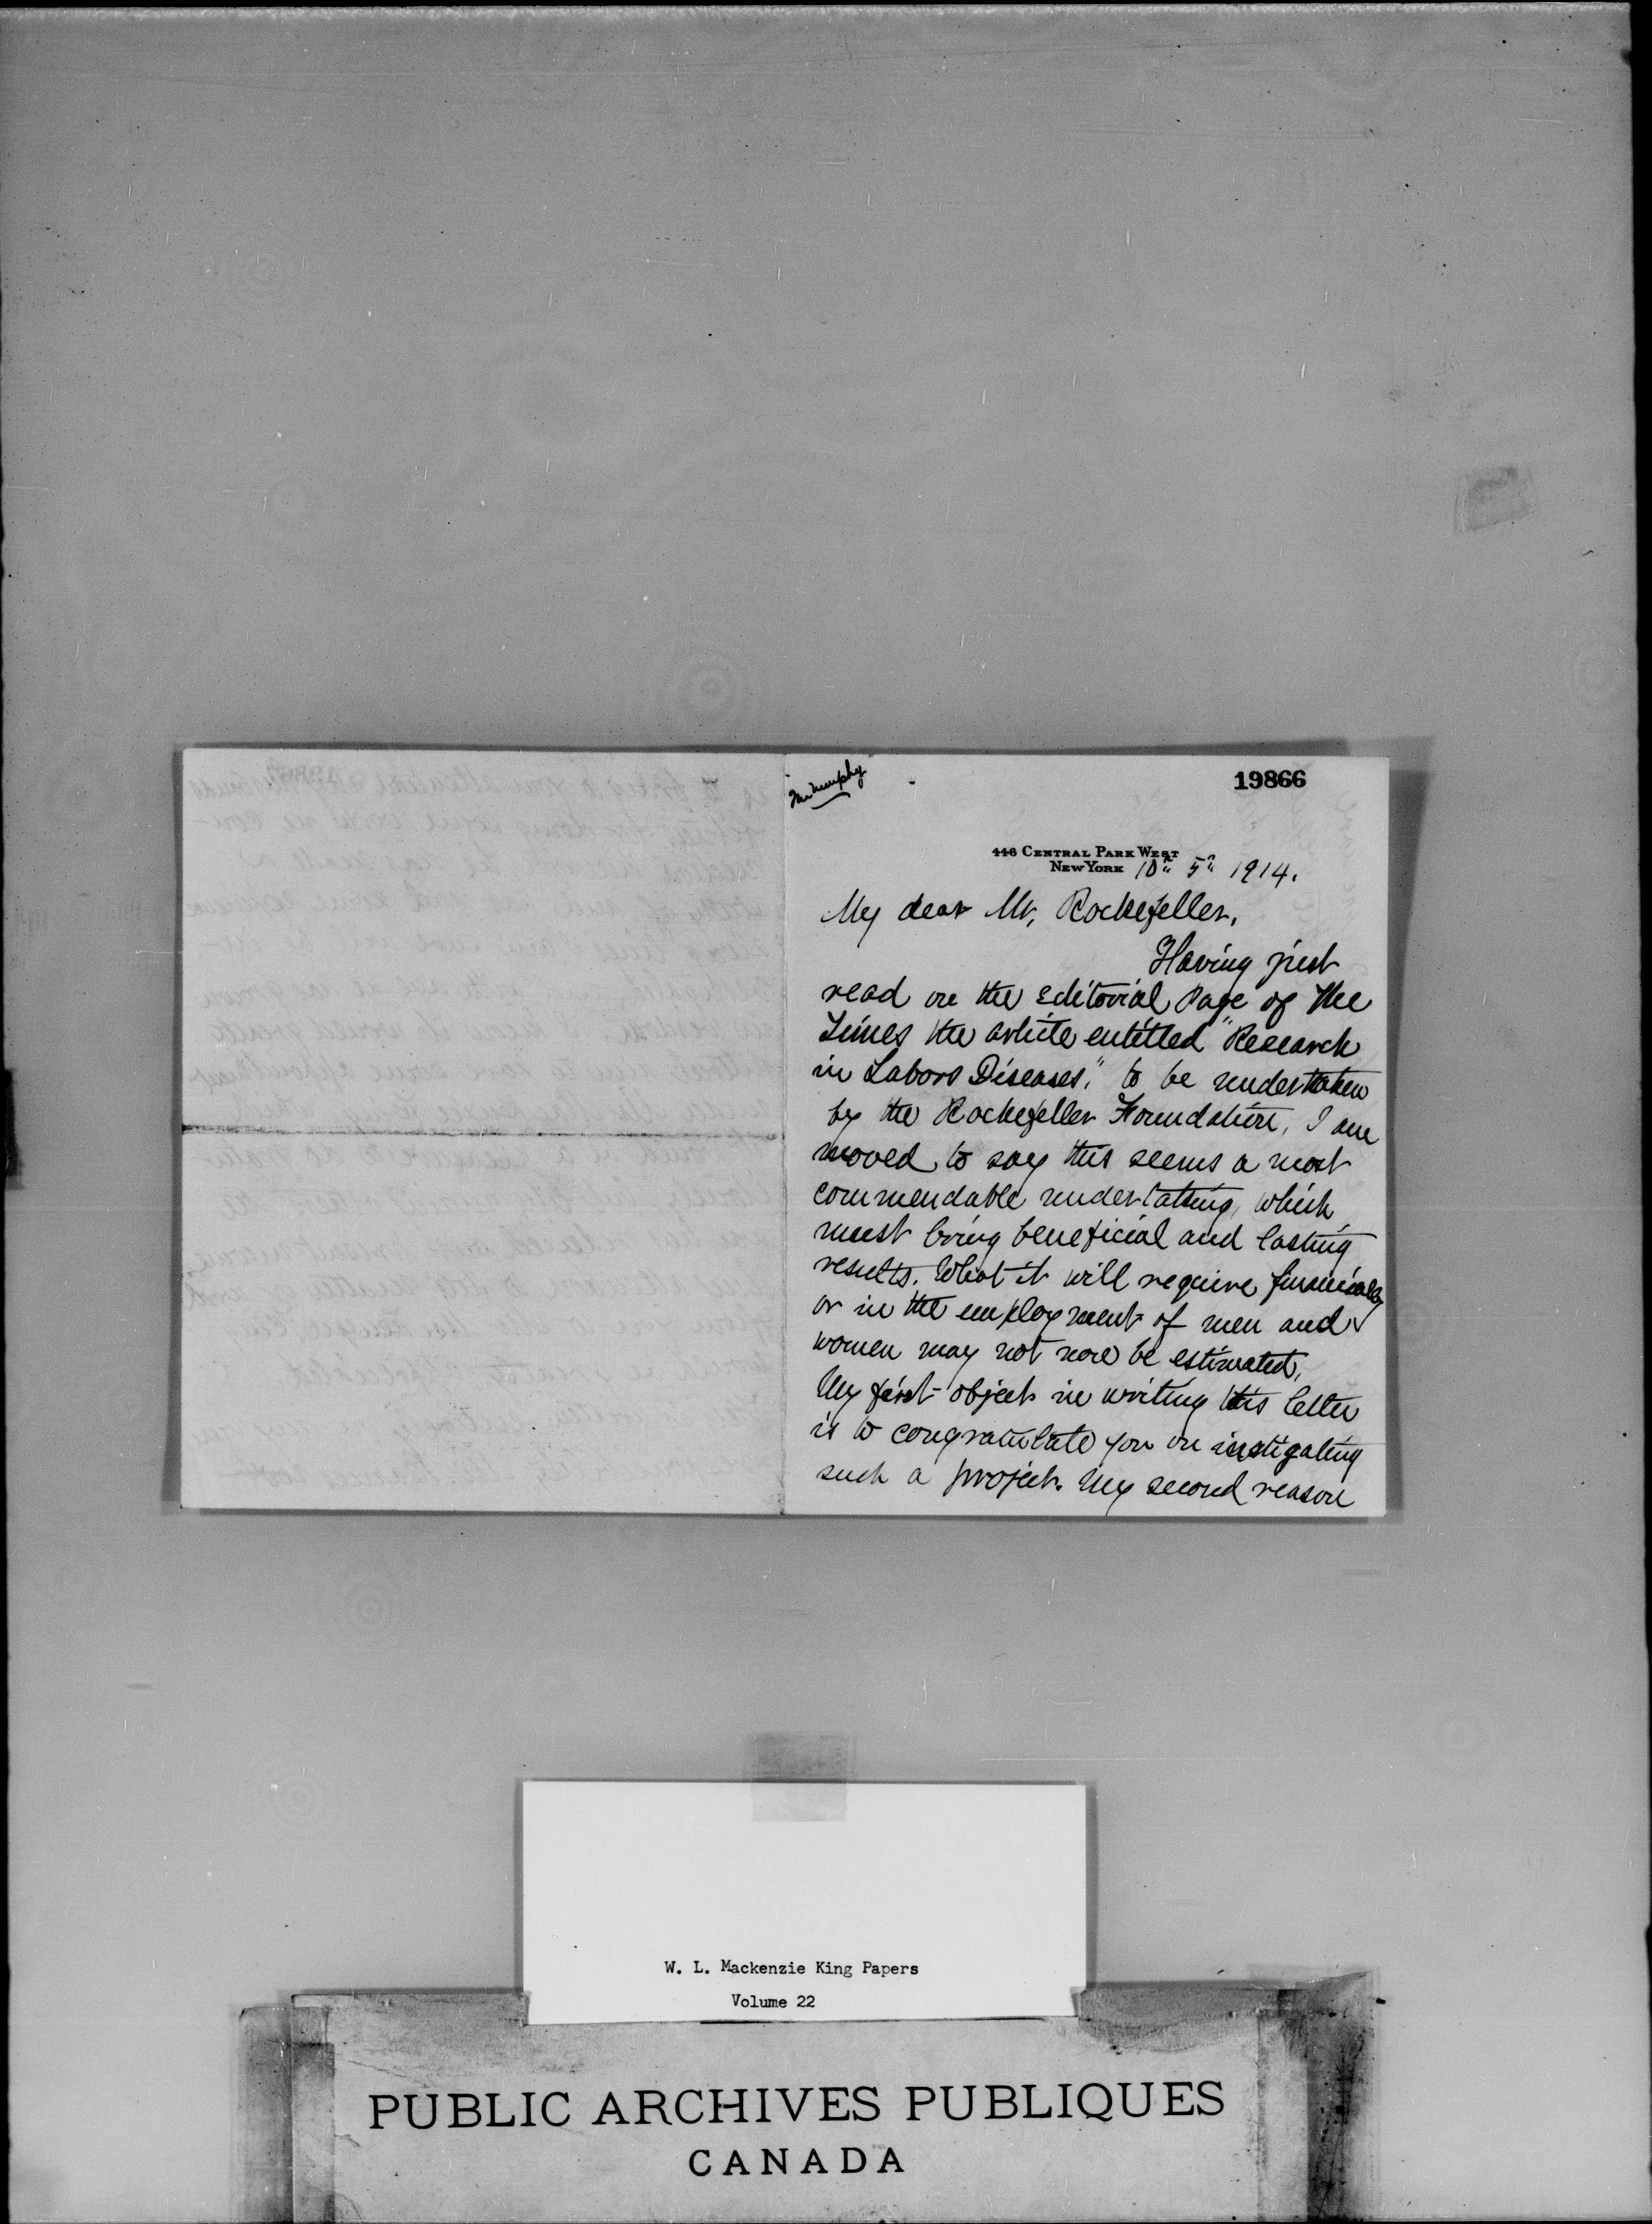 Mr Murphy
19866
446 CENTRAL PARK WEST
NEW YORK 10th 5th 1914.
My dear Mr. Rockefeller,
Having just
read on the Editorial Page of The
Times the article entitled "Research
in Labors Diseases," to be undertaken
by the Rockefeller Foundation, I am
moved to say this seems a most
commendable undertaking, which
must bring beneficial and lasting
results. What it will require financially
or in the employment of men and
women may not now be estimated.
My first object in writing this letter
is to congratulate you on instigating
such a project. My second reason
W. L. Mackenzie King Papers
Volume 22
PUBLIC ARCHIVES PUBLIQUES
CANADA